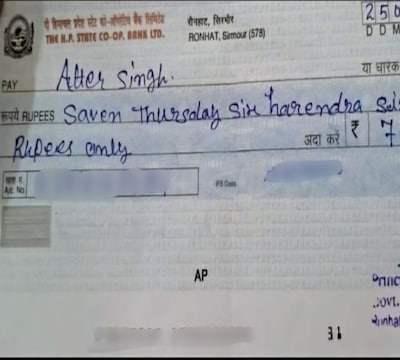 दी हिमाचल प्रदेश स्टेट को-ऑपरेटिव बैंक लिमिटेड
THE H.P. STATE CO-OP. BANK LTD.
रौनहाट, सिरमौर
RONHAT, Sirmour (578)
2 5 0
D D M
PAY Atter Singh.
या धारक
रूपये RUPEES Saven Thursday Six harendra
Rupees only
अदा करें ₹ 7
खाता नं.
A/c No.
IFS Code
AP
Princ
Govt.
Ronha
31